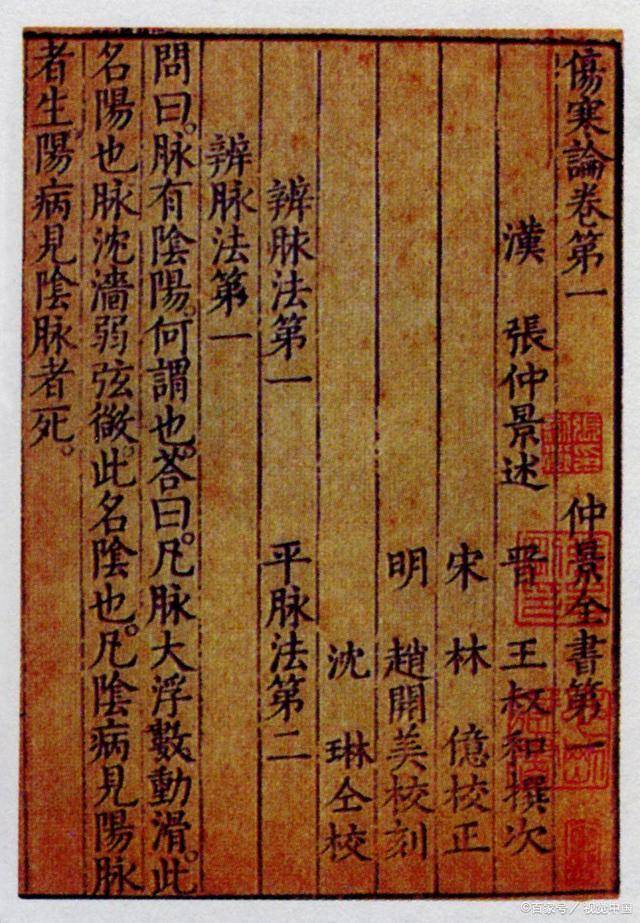 傷寒論卷第一　仲景全書第一
漢　張仲景述　晉　王叔和撰次
宋　林　億校正
明　趙開美校刻
沈　琳仝校
辨脉法第一　平脉法第二
辨脉法第一
問曰。脉有陰陽。何謂也。荅曰。凡脉大浮數動滑。此
名陽也脉沈濇弱弦微。此名陰也。凡陰病見陽脉
者生陽病見陰脉者死。
©百家号／视觉中国